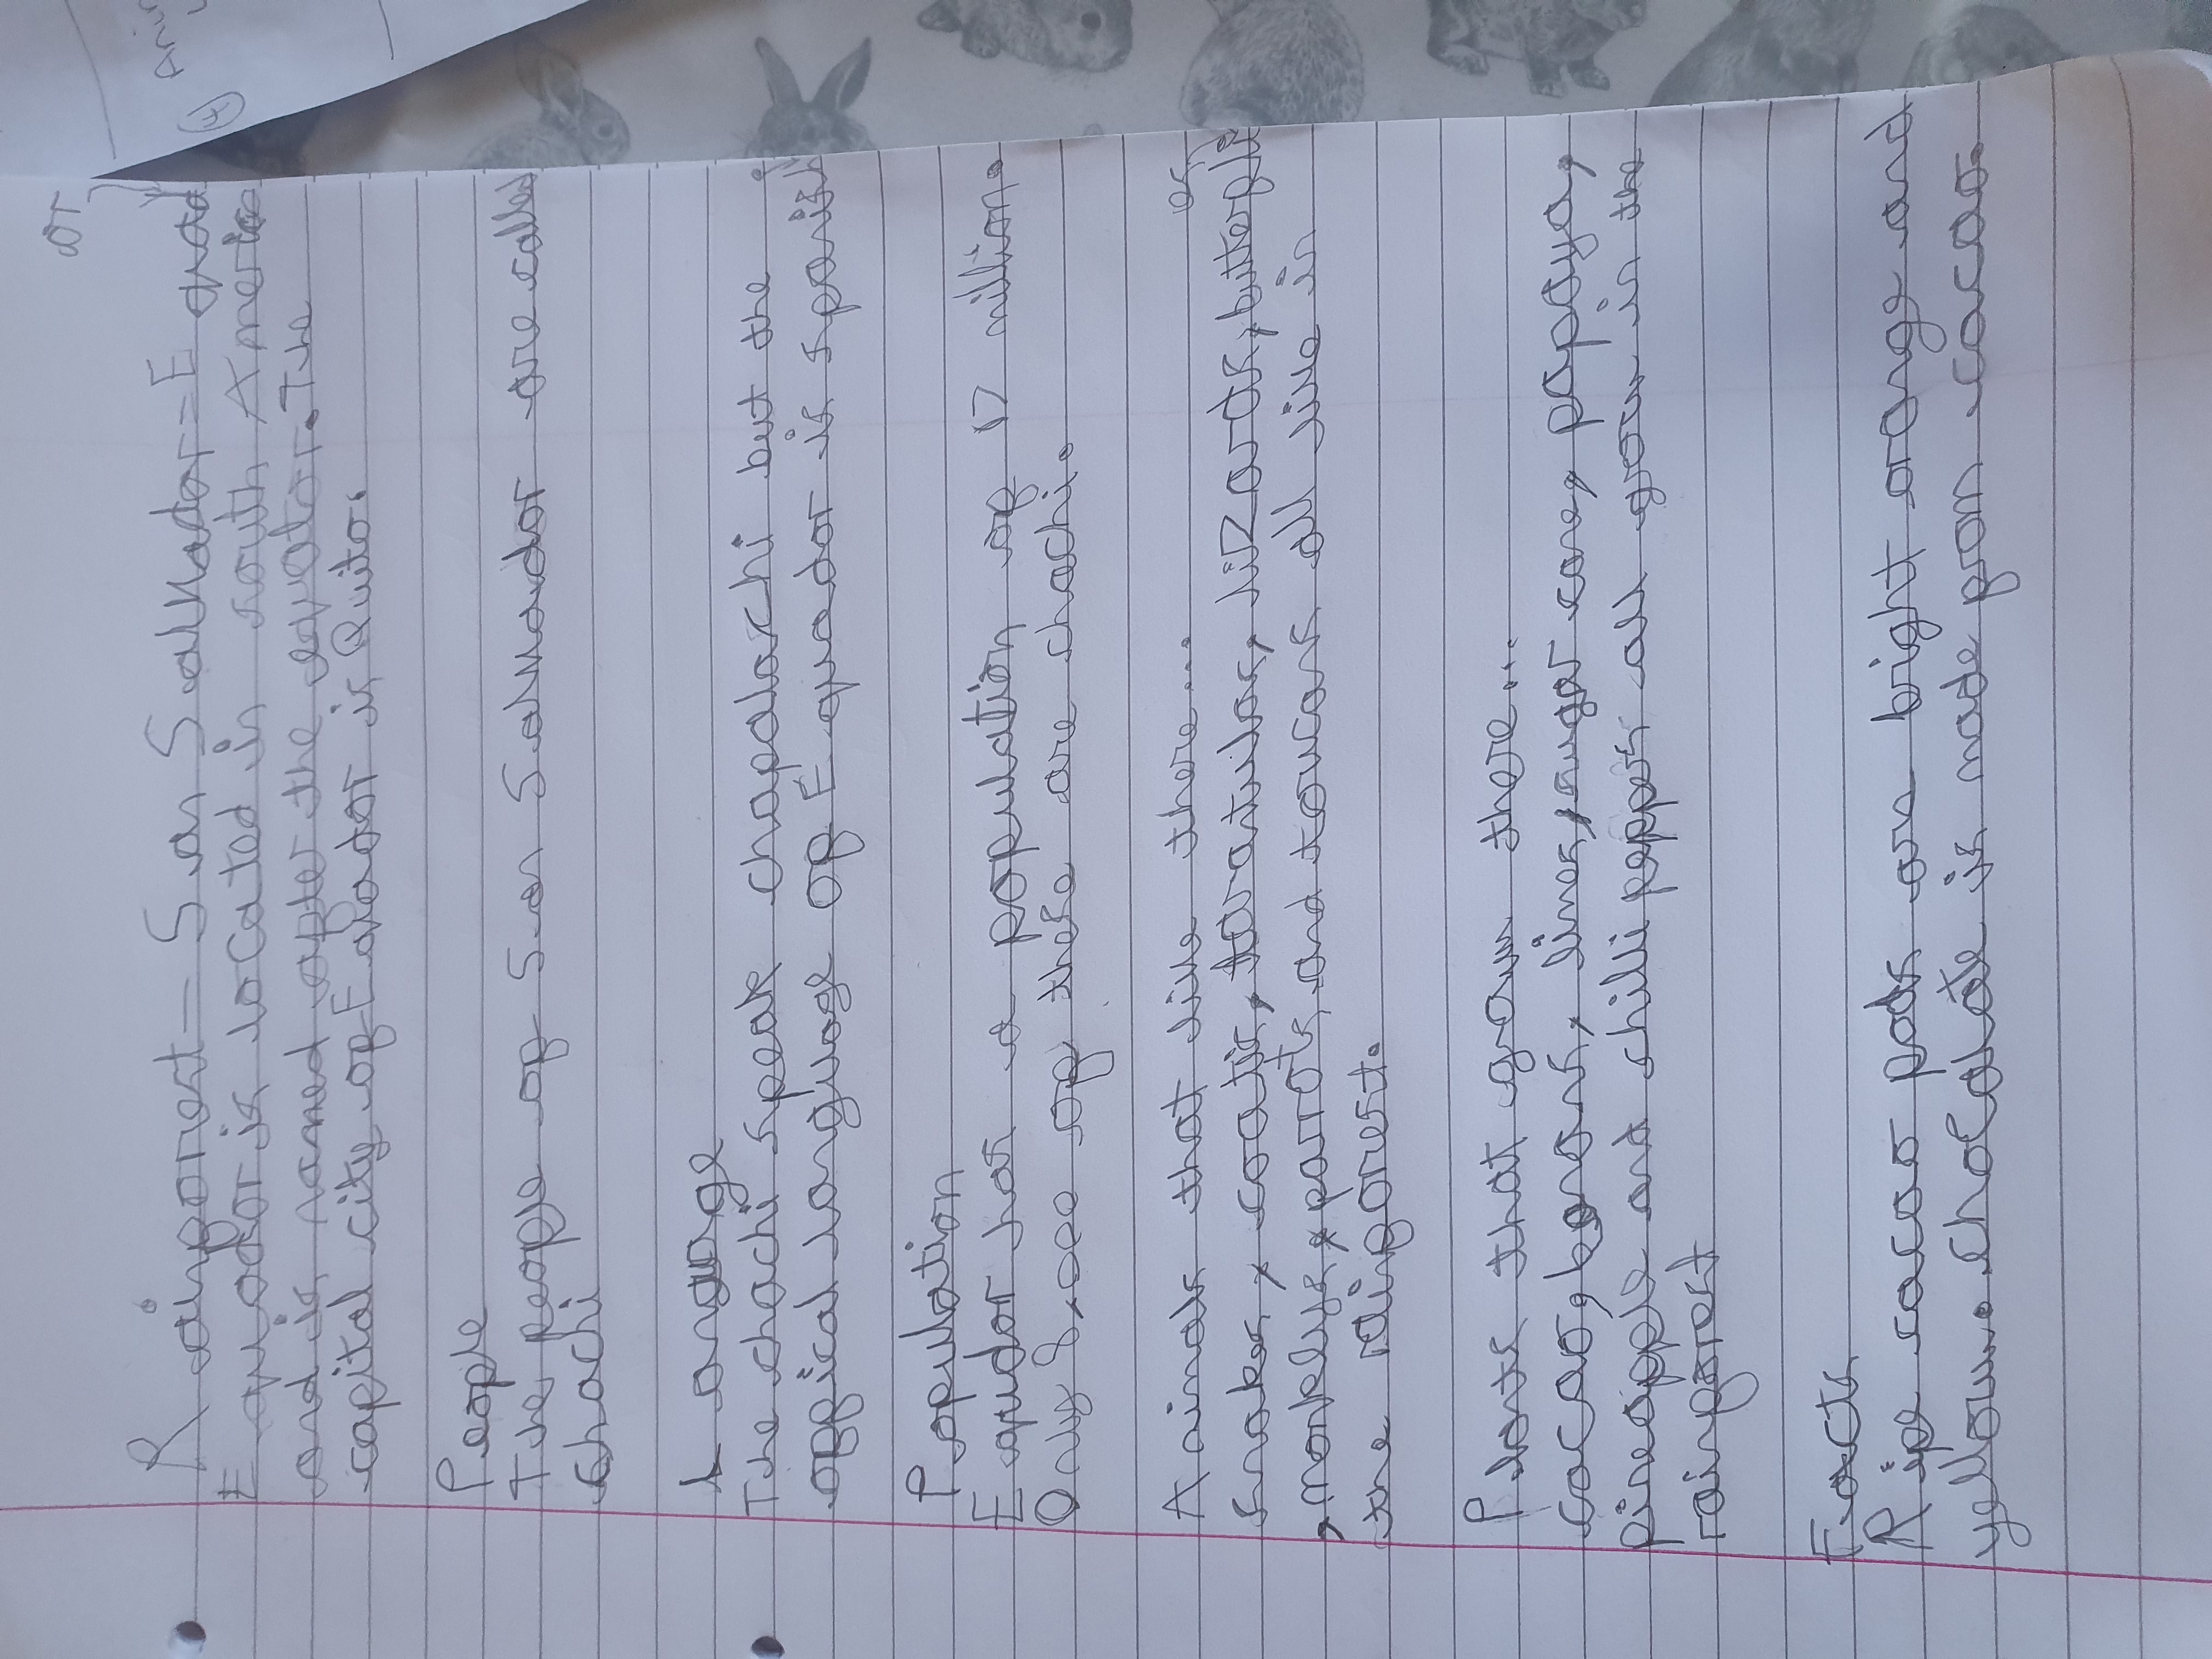 Rainforest = San Salvador = Equador
Equador is located in south America
and is named after the eqvator. The
capital city of Eqvador is Quito.
People
The people of San Salvador are called
chachi
Languge
The chachi speak chapalachi but the
offical language of Equador is spanish
Population
Equdor has a population of 17 million.
Only 8,000 of these are chachi.
Aimals that live there...
snakes, coatis, taratulas, lizards, butterflies
, monkeys, parrots, and toucans all live in
the rainforest.
Plants that grow there...
cacao, banans, limes, sugar cane, papaya,
pineapple and chilli peppers all grow in the
rainforest
Facts
Ripe cacao pods are bright orange and
yellow. chocolate is made from cacao.